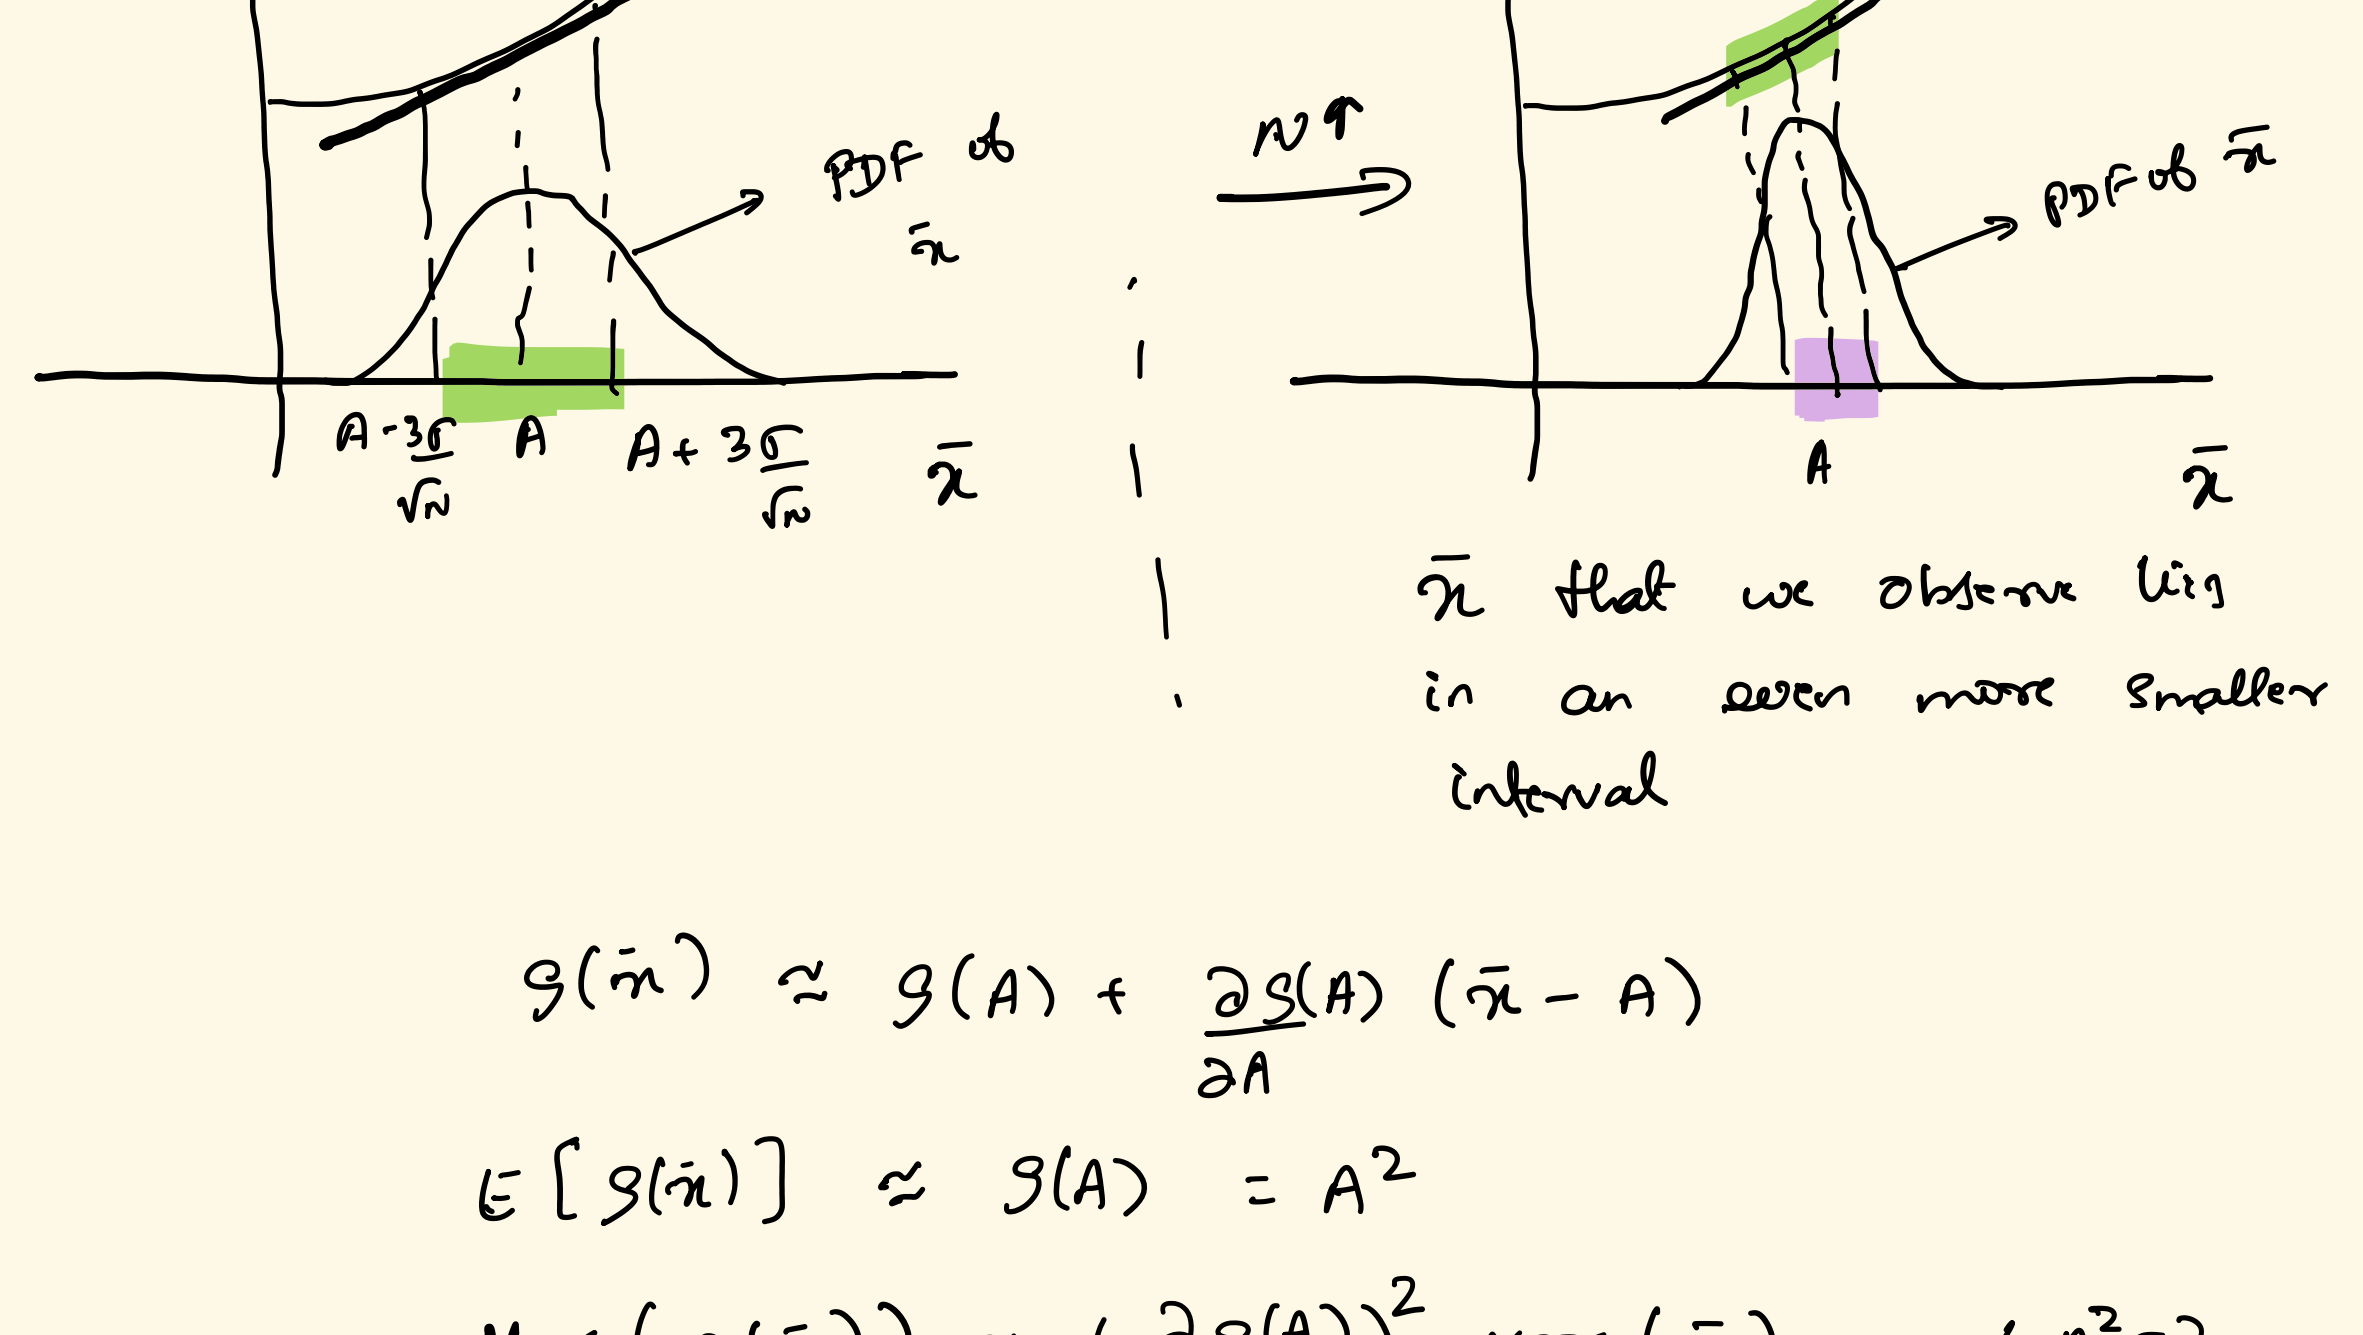 PDF of
x̄
N↑
PDF of x̄
A - 3σ/√N
A
A + 3σ/√N
x̄
A
x̄
x̄ that we observe lies
in an even more smaller
interval
g(x̄) ≈ g(A) + ∂g(A)/∂A (x̄ - A)
E[g(x̄)] ≈ g(A) = A²